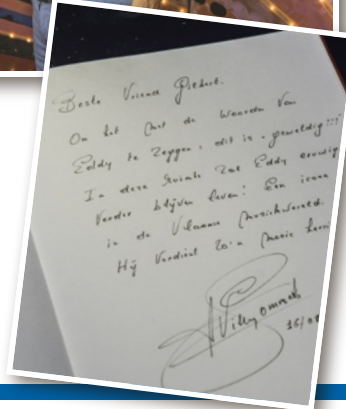 Beste Vriend
Om het met de woorden van
Eddy te zeggen, dit is "geweldig!!!"
In deze ruimte zal Eddy eeuwig
verder blijven leven! Een icoon
in de Vlaamse muziekwereld.
Hij verdient zo'n mooie
Willy Sommers
16/0